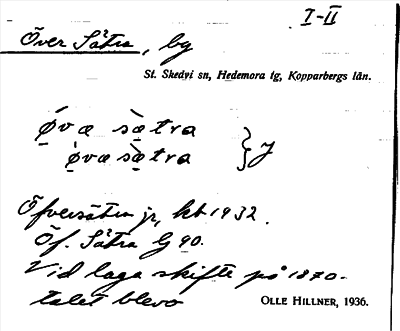 I-II
Över Sätra, by
St. Skedvi sn, Hedemora tg, Kopparbergs län.
øvæ sætra
øvæ sætra } y
Öfversätra jr, kb 1932.
Öf. Sätra G 90.
Vid laga skifte på 1870-
talet blevo
OLLE HILLNER, 1936.